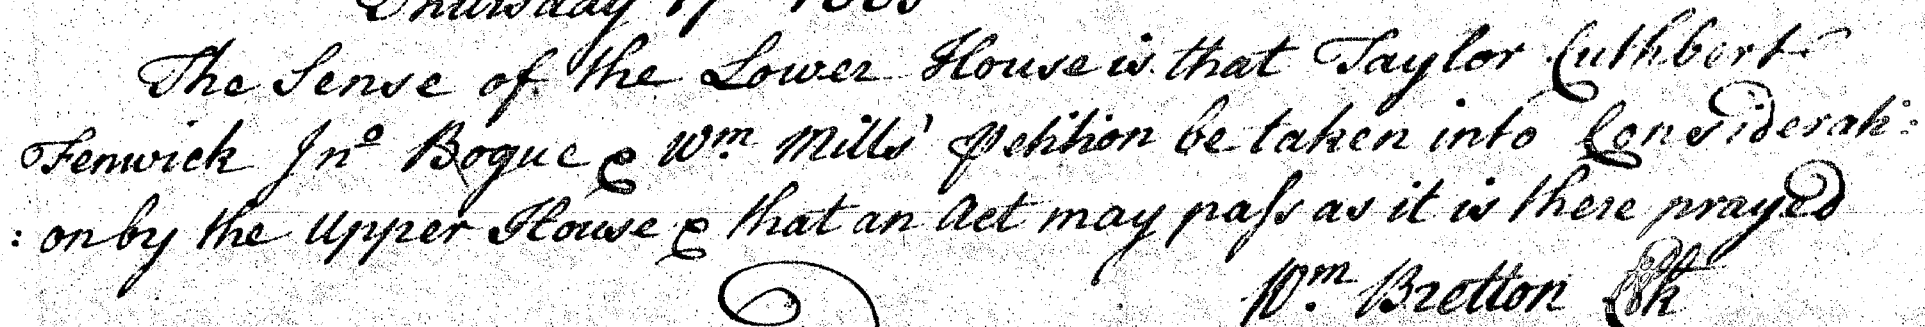 The Sense of the Lower House is that Taylor Cuthbert
Fenwick Jno Bogue & Wm Mills' Petition be taken into Considerati:
:on by the Upper House & that an Act may paſs as it is there prayed
Wm. Bretton Clk